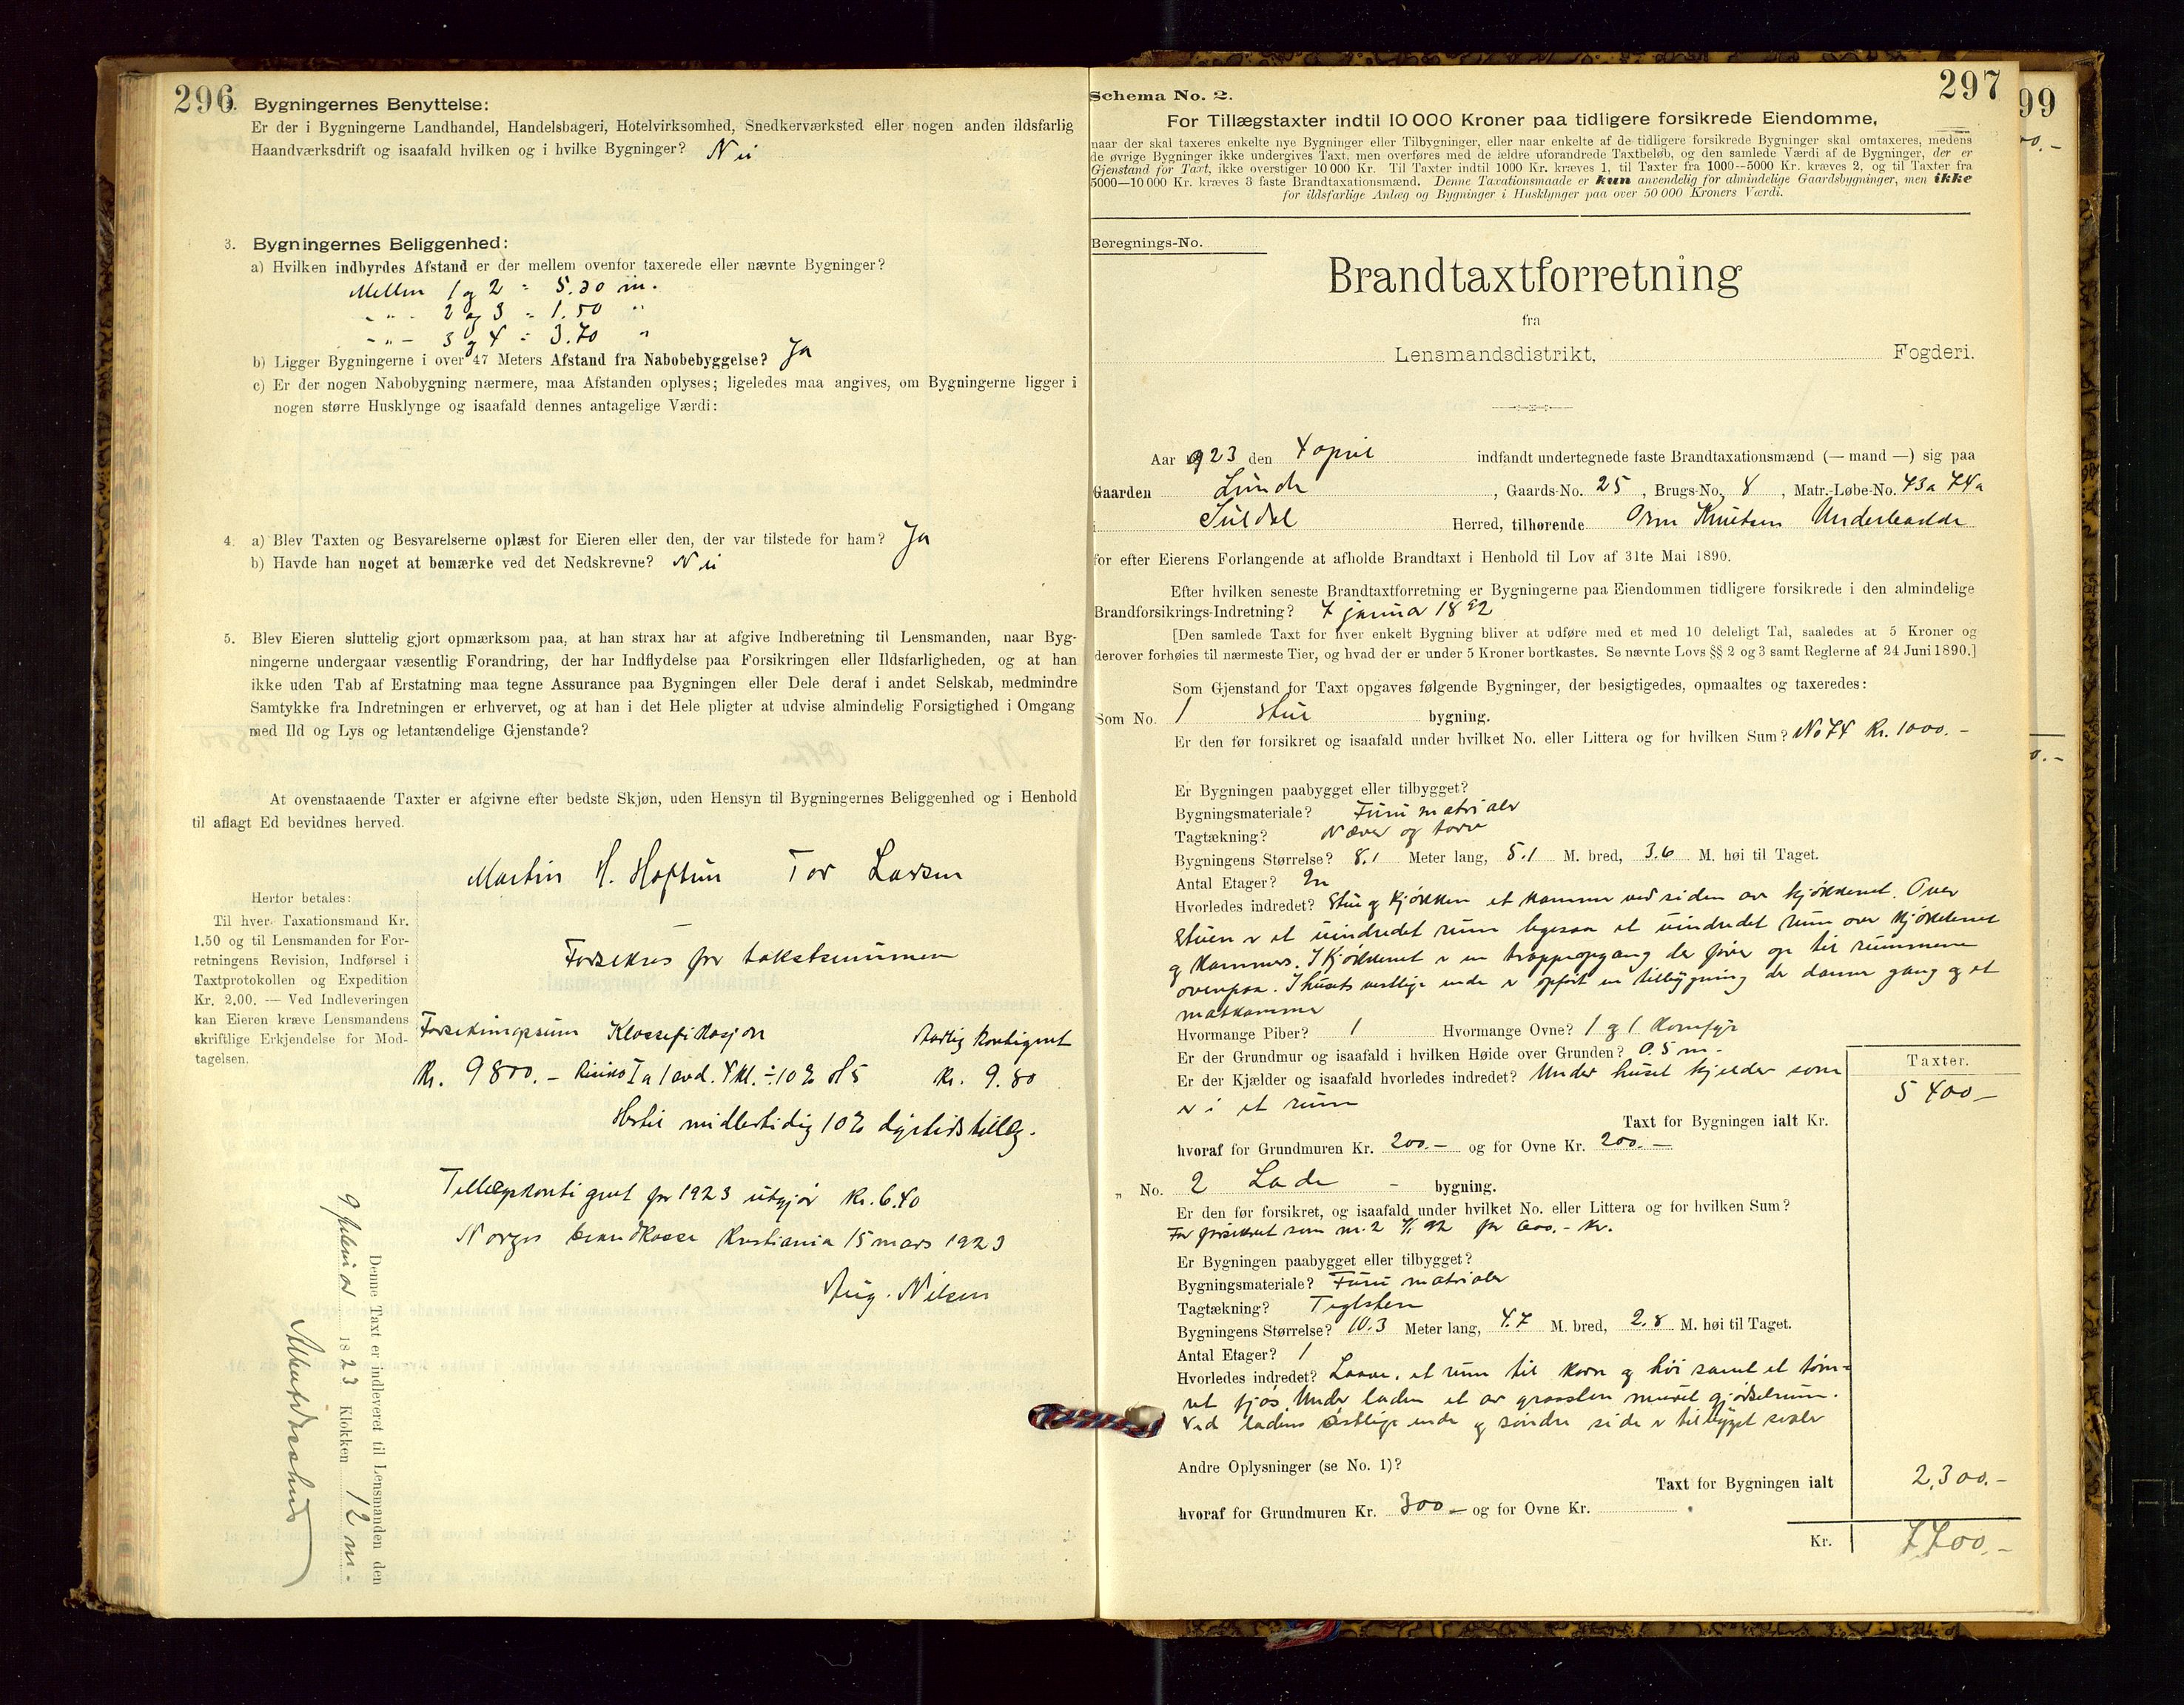 296
Bygningernes Benyttelse:
Er der i Bygningerne Landhandel, Handelsbageri, Hotelvirksomhed, Snedkerværksted eller nogen anden ildsfarlig
Haandværksdrift og isaafald hvilken og i hvilke Bygninger? Nei
3. Bygningernes Beliggenhed:
a) Hvilken indbyrdes Afstand er der mellem ovenfor taxerede eller nævnte Bygninger?
Mellem 1 og 2 = 5.30 m.
- " - 2 og 3 = 1.50 "
- " - 3 og 4 = 3.70 "
b) Ligger Bygningerne i over 47 Meters Afstand fra Nabobebyggelse? Ja
c) Er der nogen Nabobygning nærmere, maa Afstanden oplyses; ligeledes maa angives, om Bygningerne ligger i
nogen større Husklynge og isaafald dennes antagelige Værdi:
4. a) Blev Taxten og Besvarelserne oplæst for Eieren eller den, der var tilstede for ham? Ja
b) Havde han noget at bemærke ved det Nedskrevne? Nei
5. Blev Eieren sluttelig gjort opmærksom paa, at han strax har at afgive Indberetning til Lensmanden, naar Byg-
ningerne undergaar væsentlig Forandring, der har Indflydelse paa Forsikringen eller Ildsfarligheden, og at han
ikke uden Tab af Erstatning maa tegne Assurance paa Bygningen eller Dele deraf i andet Selskab, medmindre
Samtykke fra Indretningen er erhvervet, og at han i det Hele pligter at udvise almindelig Forsigtighed i Omgang
med Ild og Lys og letantændelige Gjenstande?
At ovenstaaende Taxter er afgivne efter bedste Skjøn, uden Hensyn til Bygningernes Beliggenhed og i Henhold
til aflagt Ed bevidnes herved.
Martin H. Hoftun Tor Larsen
Herfor betales:
Til hver Taxationsmand Kr.
1.50 og til Lensmanden for For-
retningens Revision, Indførsel i
Taxtprotokollen og Expedition
Kr. 2.00. — Ved Indleveringen
kan Eieren kræve Lensmandens
skriftlige Erkjendelse for Mod-
tagelsen.
Forsikres for takstsummen
Forsikringssum Klassefikasjon Aarlig kontigent
Kr. 9800.- Risiko I a 1 avd. 4 kl. ÷ 10 % H5 Kr. 9.80
Hertil midlertidig 10% dyrtidstillæg.
Tillægskontigent for 1923 utgjør kr. 6.40
Norges brandkasse Kristiania 15 mars 1923
Aug. Nilsen
Denne Taxt er indleveret til Lensmanden den
9 februar 1823 Klokken 12 m.
297
99
Schema No. 2.
For Tillægstaxter indtil 10 000 Kroner paa tidligere forsikrede Eiendomme,
naar der skal taxeres enkelte nye Bygninger eller Tilbygninger, eller naar enkelte af de tidligere forsikrede Bygninger skal omtaxeres, medens
de øvrige Bygninger ikke undergives Taxt, men overføres med de ældre uforandrede Taxtbeløb, og den samlede Værdi af de Bygninger, der er
Gjenstand for Taxt, ikke overstiger 10 000 Kr. Til Taxter indtil 1000 Kr. kræves 1, til Taxter fra 1000—5000 Kr. kræves 2, og til Taxter fra
5000—10 000 Kr. kræves 3 faste Brandtaxationsmænd. Denne Taxationsmaade er kun anvendelig for almindelige Gaardsbygninger, men ikke
for ildsfarlige Anlæg og Bygninger i Husklynger paa over 50 000 Kroners Værdi.
Beregnings-No.
Brandtaxtforretning
fra
Lensmandsdistrikt, Fogderi.
Aar 1923 den 4 april indfandt undertegnede faste Brandtaxationsmænd (— mand —) sig paa
Gaarden Lunde, Gaards-No. 25, Brugs-No. 8, Matr.-Løbe-No. 73a 74a
i Suldal Herred, tilhørende Orm Knutsen Underbakke
for efter Eierens Forlangende at afholde Brandtaxt i Henhold til Lov af 31te Mai 1890.
Efter hvilken seneste Brandtaxtforretning er Bygningerne paa Eiendommen tidligere forsikrede i den almindelige
Brandforsikrings-Indretning? 7 januar 1892
[Den samlede Taxt for hver enkelt Bygning bliver at udføre med et med 10 deleligt Tal, saaledes at 5 Kroner og
derover forhøies til nærmeste Tier, og hvad der er under 5 Kroner bortkastes. Se nævnte Lovs §§ 2 og 3 samt Reglerne af 24 Juni 1890.]
Som Gjenstand for Taxt opgaves følgende Bygninger, der besigtigedes, opmaaltes og taxeredes:
Som No. 1 Stue bygning.
Er den før forsikret og isaafald under hvilket No. eller Littera og for hvilken Sum? No 74 Kr. 1000.-
Er Bygningen paabygget eller tilbygget?
Bygningsmateriale? Furu matrialer
Tagtækning? Næver og torv
Bygningens Størrelse? 8.1 Meter lang, 5.1 M. bred, 3.6 M. høi til Taget.
Antal Etager? En
Hvorledes indredet? Stue og kjøkken et kammer ved siden av kjøkkenet. Over
Stuen er et uindredet rum ligesaa et uindredet rum over kjøkkenet
og kammers. I kjøkkenet er en trappopgang der fører op til rummene
ovenpaa. I husets vestlige ende er opført en tilbygning der danner gang og et
matkammer
Hvormange Piber? 1 Hvormange Ovne? 1 og 1 komfyr
Er der Grundmur og isaafald i hvilken Høide over Grunden? 0.5 m.
Er der Kjælder og isaafald hvorledes indredet? Under huset kjelder som
er i et rum
Taxter.
5400-
Taxt for Bygningen ialt Kr.
hvoraf for Grundmuren Kr. 200.- og for Ovne Kr. 200.-
„ No. 2 Lade - bygning.
Er den før forsikret, og isaafald under hvilket No. eller Littera og for hvilken Sum?
Før forsikret som nr. 2 7/1 92 for 600.- kr.
Er Bygningen paabygget eller tilbygget?
Bygningsmateriale? Furu matrialer
Tagtækning? Teglsten
Bygningens Størrelse? 10.3 Meter lang, 4.7 M. bred, 2.8 M. høi til Taget.
Antal Etager? 1
Hvorledes indredet? Laave, et rum til korn og høi samt et tøm-
ret fjøs. Under laden et av graasten muret gjødselrum.
Ved ladens østlige ende og søndre side er tilbygget svaler
Andre Oplysninger (se No. 1)?
Taxt for Bygningen ialt 2,300.-
hvoraf for Grundmuren Kr. 300- og for Ovne Kr.
Kr. 7700.-